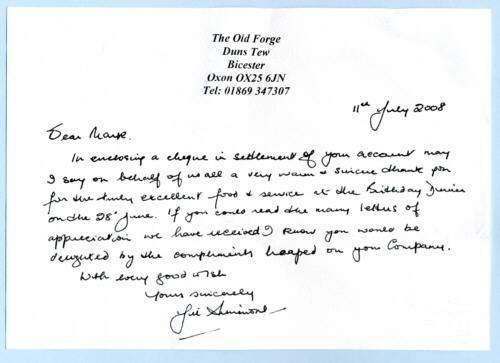 The Old Forge
Duns Tew
Bicester
Oxon OX25 6JN
Tel: 01869 347307
11th July 2008
Dear Mark.
In enclosing a cheque in settlement of your account may
I say on behalf of us all a very warm & sincere thank you
for the truly excellent food & service at the Birthday Dinner
on the 28th June. If you could read the many letters of
appreciation we have received I know you would be
delighted by the compliments heaped on your Company.
With every good wish
Yours sincerely